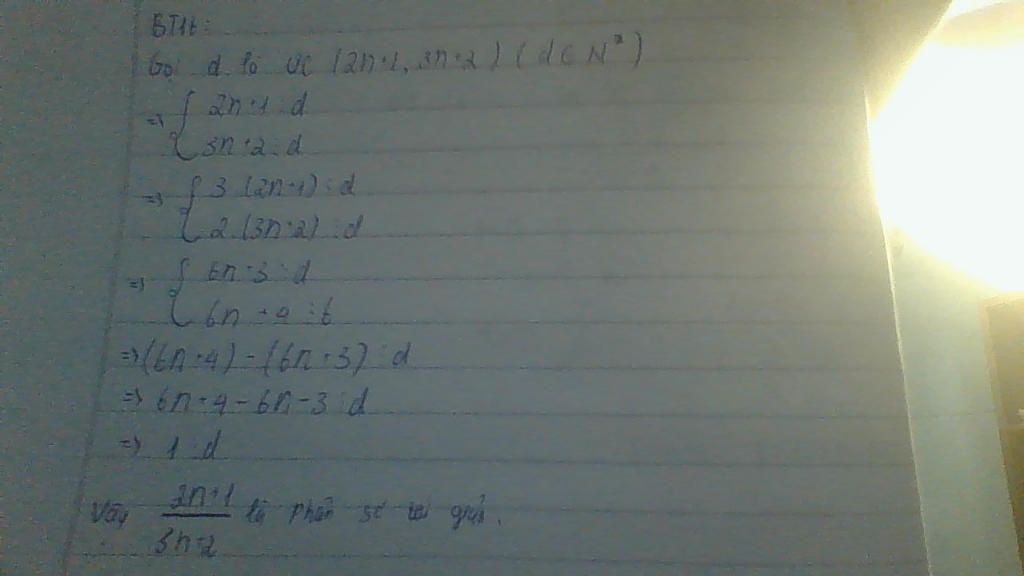 BT1t:
Gọi d là ƯC (2n+1, 3n+2) (d ∈ N*)
=> { 2n+1 ⋮ d
3n+2 ⋮ d
=> { 3 (2n+1) ⋮ d
2 (3n+2) ⋮ d
=> { 6n+3 ⋮ d
6n+4 ⋮ 6
=> (6n+4) - (6n+3) ⋮ d
=> 6n+4-6n-3 ⋮ d
=> 1 ⋮ d
Vậy 2n+1/3n+2 là phân số tối giản.